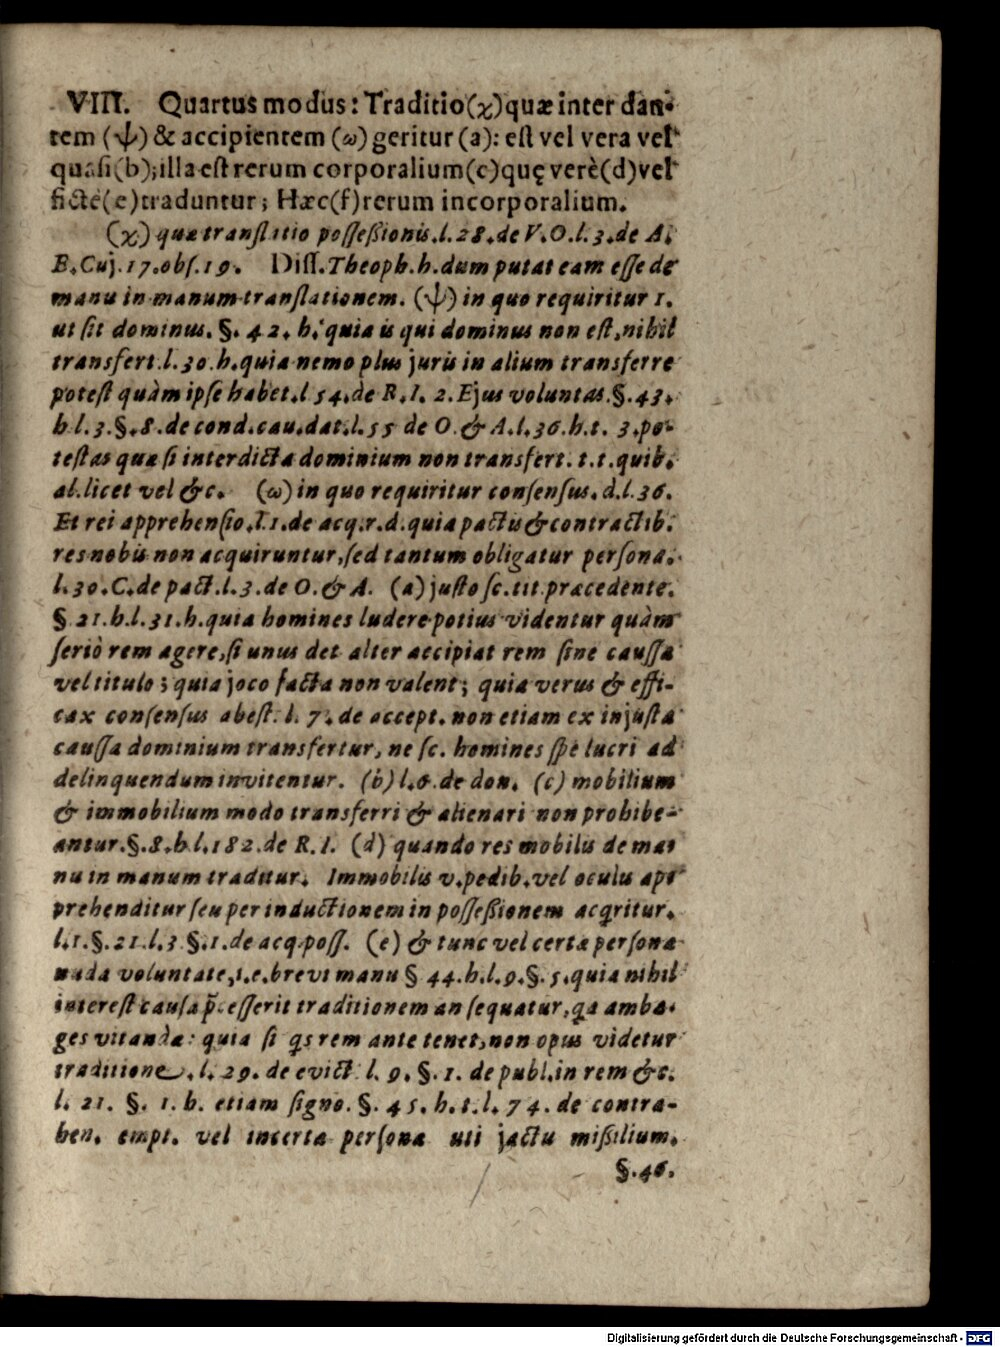 VIII. Quartus modus: Traditio (χ) quæ inter dan-
tem (ψ) & accipientem (ω) geritur (a): est vel vera vel
quasi (b); illa est rerum corporalium (c) quę verè (d) vel
fictè (e) traduntur; Hæc (f) rerum incorporalium.
(χ) quæ translatio possessionis. l. 28. de V. O. l. 3. de A.
E. Cuj. 17. obs. 19. Diss. Theoph. h. dum putat eam esse de
manu in manum translationem. (ψ) in quo requiritur 1.
ut sit dominus. §. 42. h. quia is qui dominus non est, nihil
transfert. l. 30 h. quia nemo plus juris in alium transferre
potest quàm ipse habet. l 54. de R. I. 2. Ejus voluntas. §. 43.
h l. 3. §. 8. de cond. cau. dat. l. 55 de O. & A. l. 36. h. t. 3. po-
testas quæ si interdicta dominium non transfert. t. t. quib.
al. licet vel &c. (ω) in quo requiritur consensus. d. l. 36.
Et rei apprehensio. l. 1. de acq. r. d. quia pactis & contractib.
res nobis non acquiruntur, sed tantum obligatur persona.
l. 30. C. de pact. l. 3. de O. & A. (a) justo sc. tit præcedente.
§ 21. h. l. 31. h. quia homines ludere potius videntur quàm
seriò rem agere, si unus det alter accipiat rem sine caussa
vel titulo; quia joco facta non valent; quia verus & effi-
cax consensus abest. l. 7. de accept. non etiam ex injusta
caussa dominium transfertur, ne sc. homines spe lucri ad
delinquendum invitentur. (b) l. 6. de don. (c) mobilium
& immobilium modo transferri & alienari non prohibe-
antur. §. 8. h l. 182. de R. I. (d) quando res mobilis de ma-
nu in manum traditur. Immobilis v. pedib. vel oculis ap-
prehenditur seu per inductionem in possessionem acqritur.
l. 1. §. 21. l. 3 §. 1. de acq. poss. (e) & tunc vel certæ personæ
nuda voluntate, i. e. brevi manu § 44. h. l. 9. §. 5. quia nihil
interest causa p̄cesserit traditionem an sequatur, qa amba-
ges vitandæ: quia si qs rem ante tenet, non opus videtur
traditione. l. 29. de evict l. 9. §. 1. de publ. in rem &c.
l. 21. §. 1. h. etiam signo. §. 45. h. t. l. 74. de contra-
hen. empt. vel incerta persona uti jactu missilium.
§. 46.
Digitalisierung gefördert durch die Deutsche Forschungsgemeinschaft - DFG